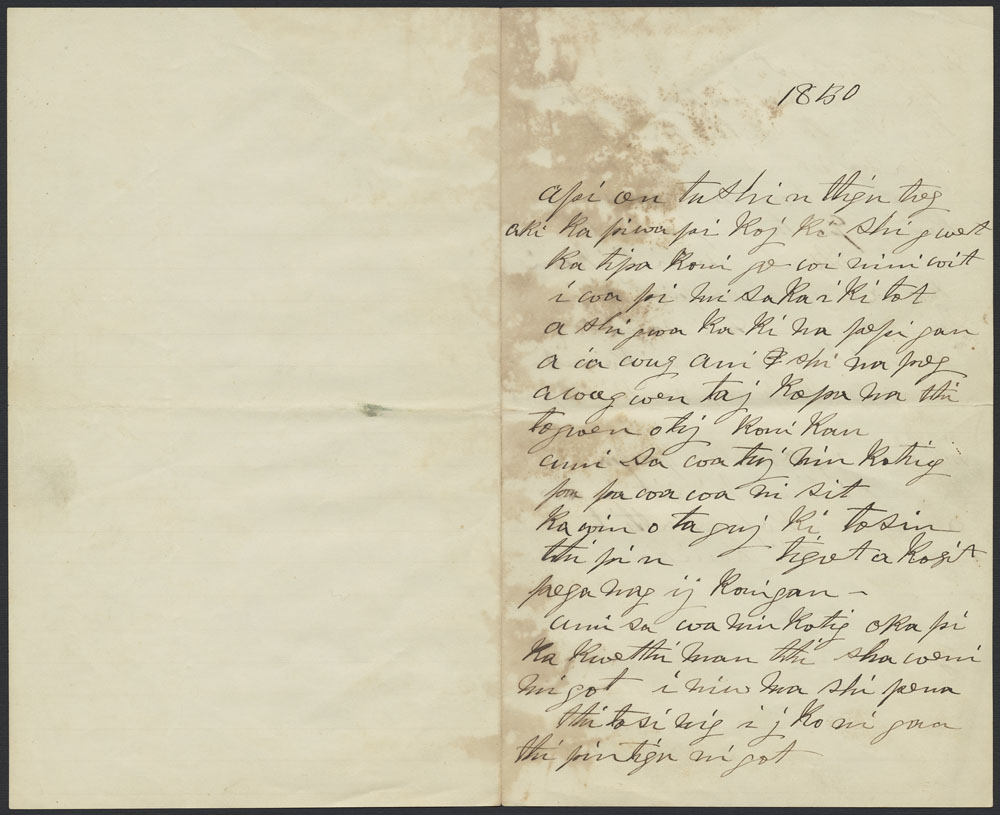 1830
api æn tushin thign tieg
aki ka piwa pi koj ki shigwet
ka tipa koni gæ wi nini wit
i wa pi mi saka i ki tot
a shigwa ka ki na pepi gan
a ia woug ani shi na peg
awæg wen taj kæpa na thi
tægwen otij koni kan
umi sa wa tuj nin kotig
pa wa wa ni sit
ka win o ta guj ki tæsin
thi pi n tigot a kogit
pega nag ij konigan -
umi sa wa nin kotig oka pi
ka kwethi man thi shaweni
migot i niw ma shi pena
thi tæsi nig i j ko ni gaa
thi pin tign ni got